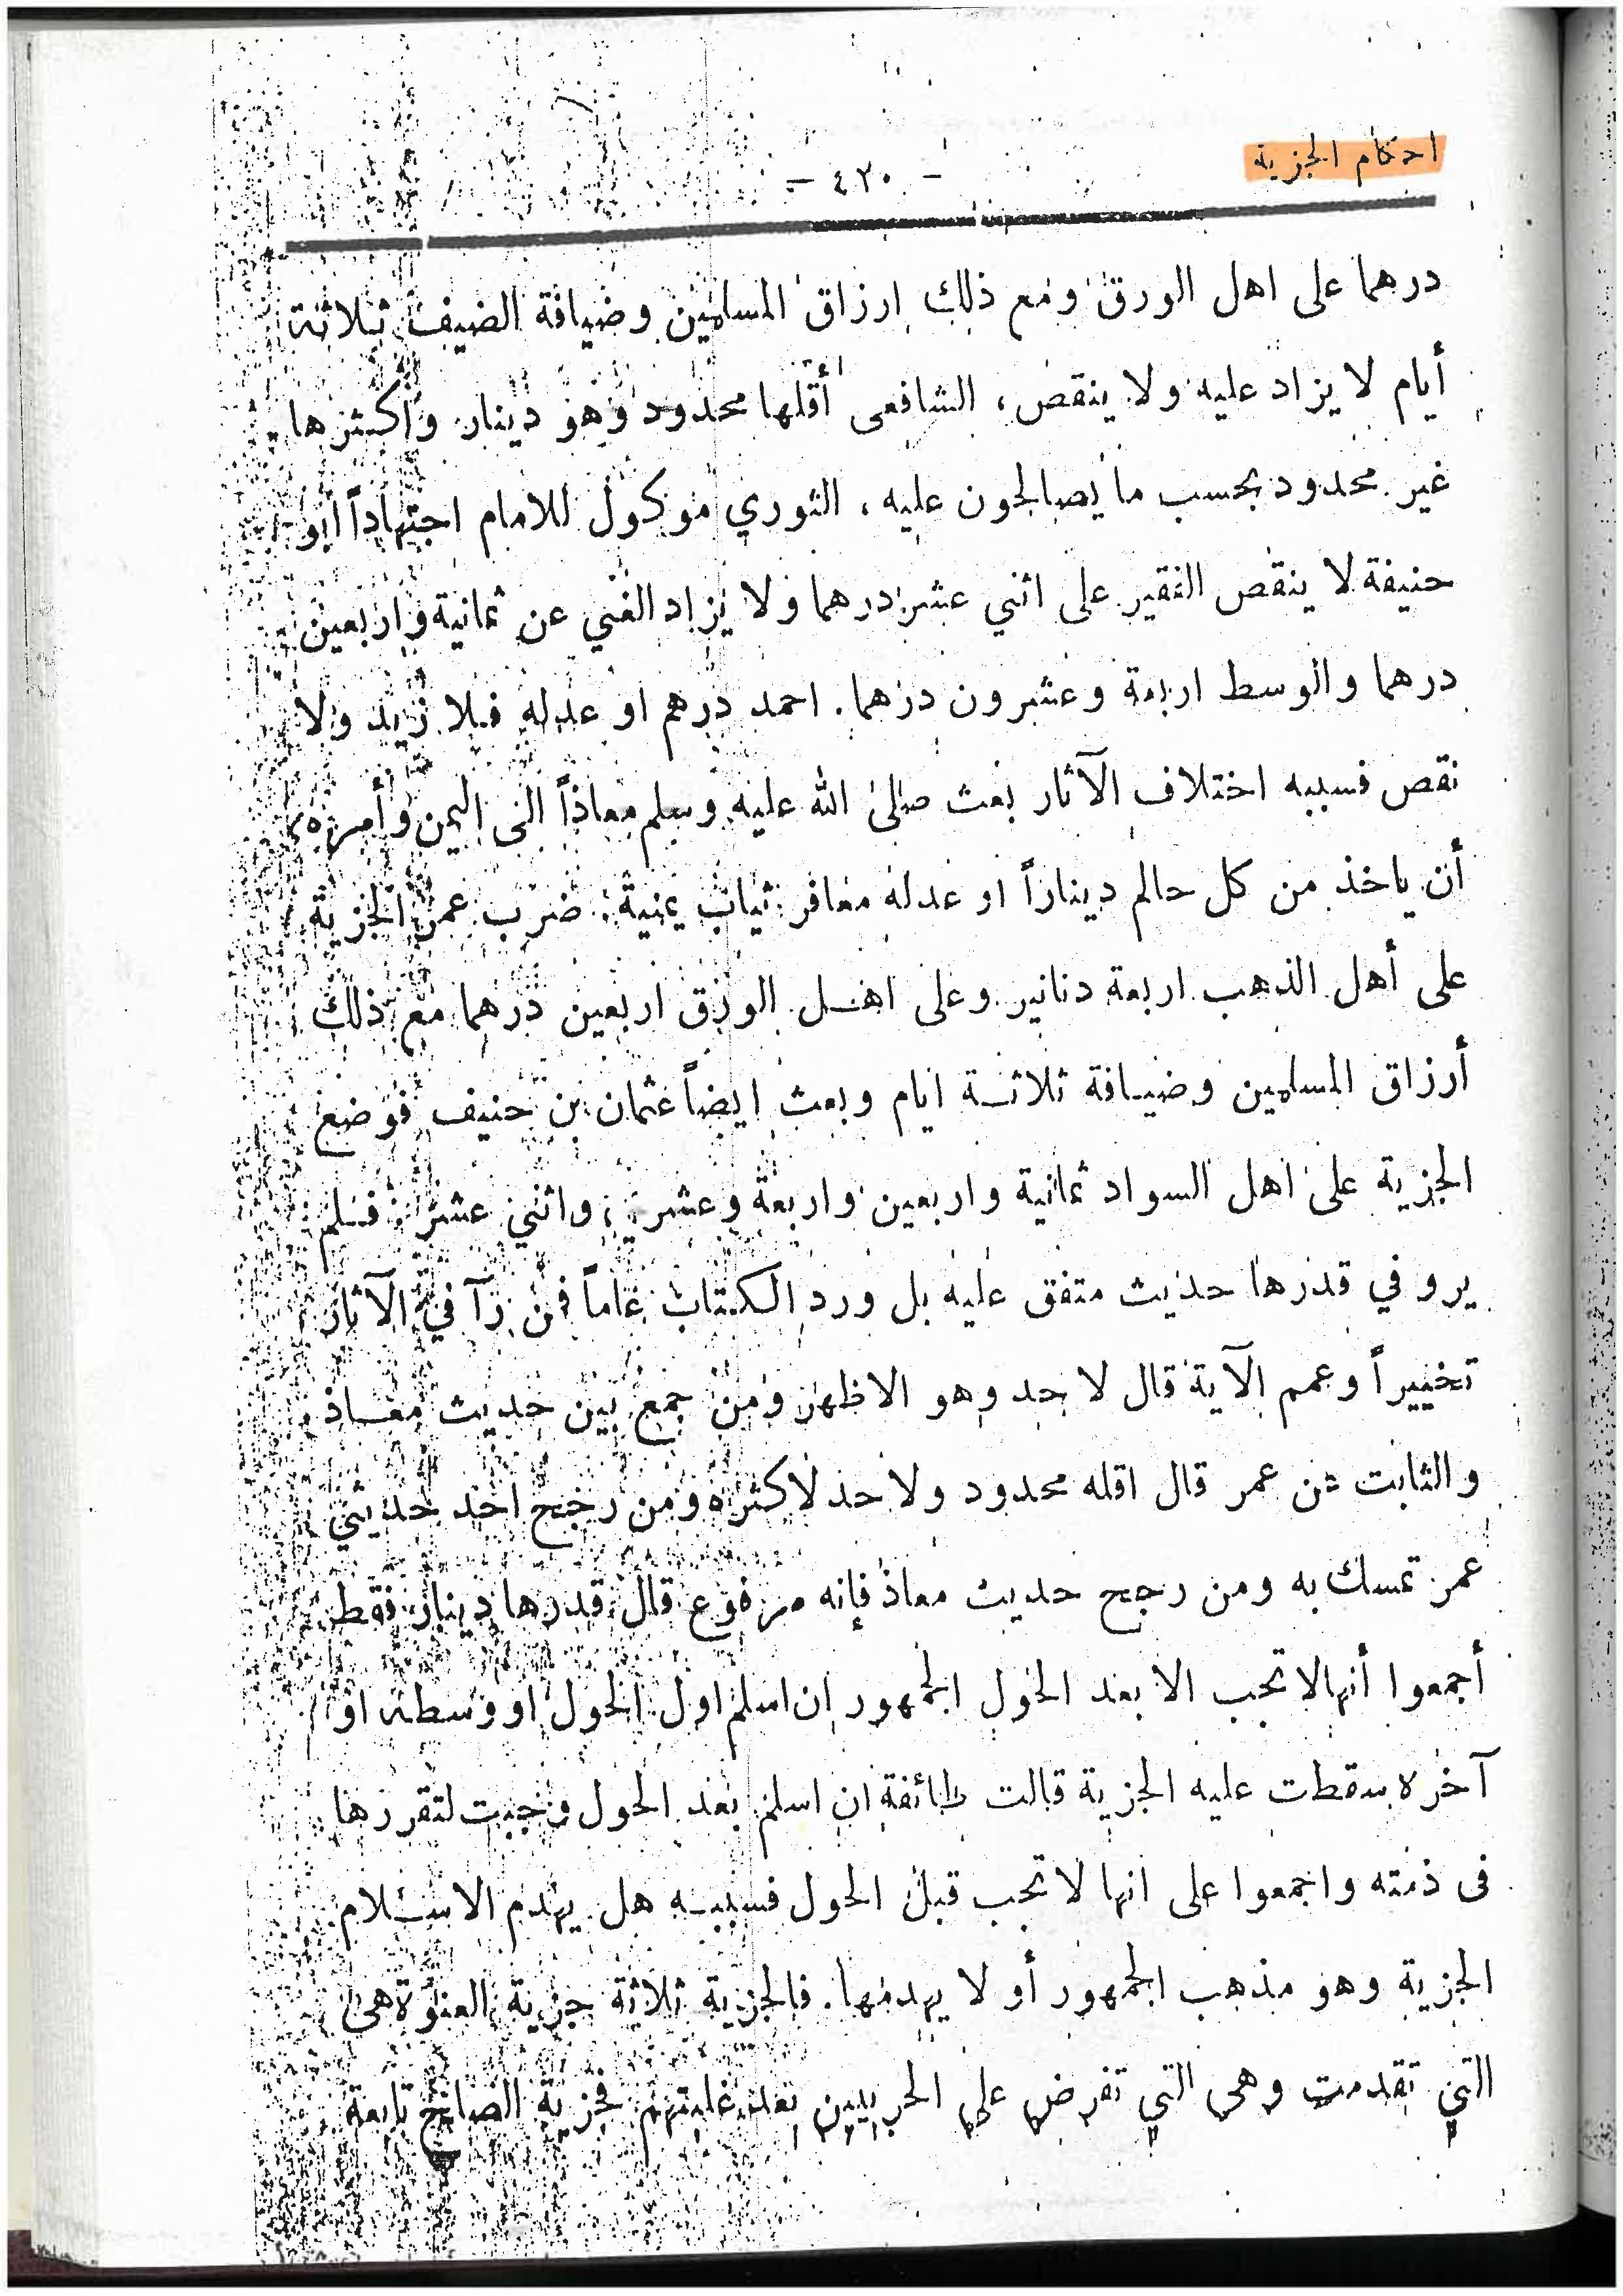 احكام الجزية
- ٤٢٠ -
درهما على اهل الورق ومع ذلك ارزاق المسلمين وضيافة الضيف ثلاثة
أيام لا يزاد عليه ولا ينقص، الشافعى أقلها محدود وهو دينار واكثرها
غير محدود بحسب ما يصالحون عليه، الثوري موكول للامام اجتهاداً ابو
حنيفة لا ينقص الفقير على اثني عشر درهما ولا يزاد الغني عن ثمانية واربعين
درهما والوسط اربعة وعشرون درهما. احمد درهم او عدله فلا زيد ولا
نقص فسببه اختلاف الآثار بعث صلى الله عليه وسلم معاذاً الى اليمن وأمره
أن ياخذ من كل حالم ديناراً او عدله معافر ثياب يمنية. ضرب عمر الجزية
على أهل الذهب اربعة دنانير وعلى اهل الورق اربعين درهما مع ذلك
أرزاق المسلمين وضيافة ثلاثة ايام وبعث ايضاً عثمان بن حنيف فوضع
الجزية على اهل السواد ثمانية واربعين واربعة وعشر، واثني عشر. فلم
يرو في قدرها حديث متفق عليه بل ورد الكتاب عاماً فمن رآ في الآثار
تخييراً وعمم الآية قال لا حد وهو الاظهر ومن جمع بين حديث معاذ
والثابت عن عمر قال اقله محدود ولا حد لاكثره ومن رجح احد حديثي
عمر تمسك به ومن رجح حديث معاذ فإنه مرفوع قال قدرها دينار فقط.
أجمعوا أنها لا تجب الا بعد الحول الجمهور ان اسلم اول الحول او وسطه او
آخره سقطت عليه الجزية قالت طائفة ان اسلم بعد الحول وجبت لتقررها
فى ذمته واجمعوا على انها لا تجب قبل الحول فسببه هل يهدم الاسلام
الجزية وهو مذهب الجمهور أو لا يهدمها. فالجزية ثلاثة جزية العنوة هى
التي تقدمت وهى التي تفرض على الحربيين بعد غلبتهم فجزية الصلح تابعة